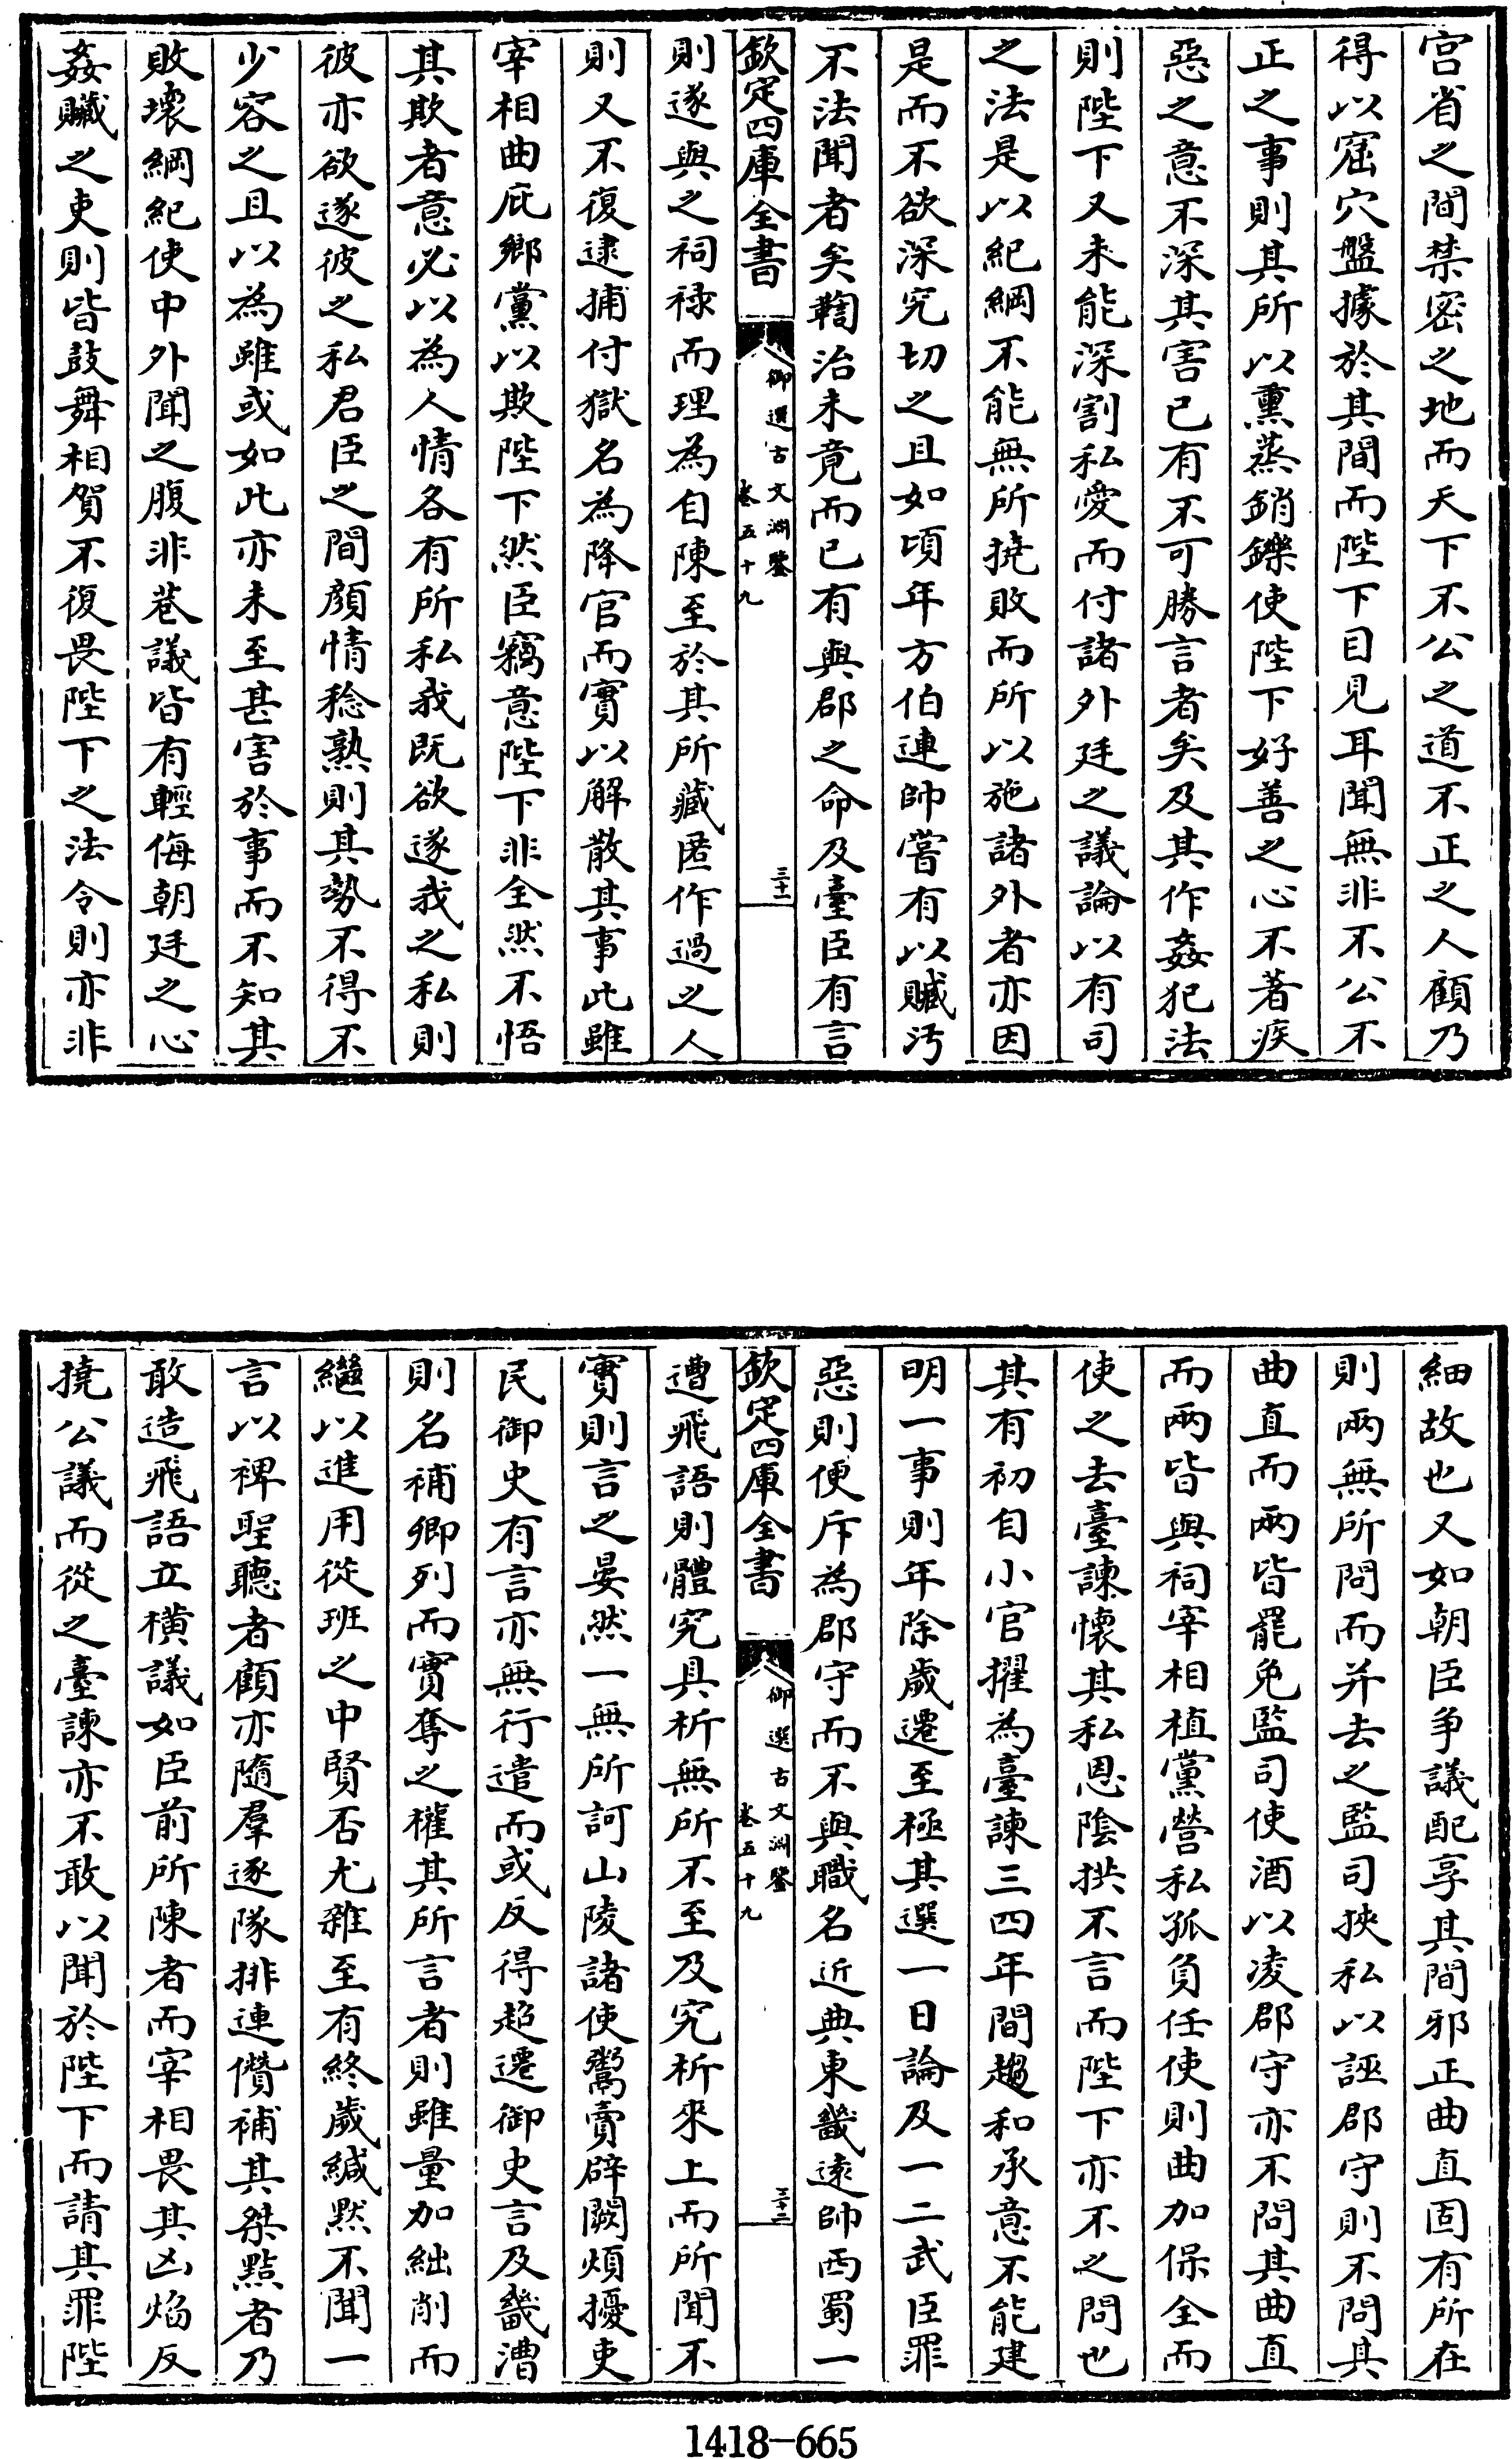 宫省之間禁密之地而天下不公之道不正之人顧乃
得以窟穴盤據於其間而陛下目見耳聞無非不公不
正之事則其所以熏蒸銷鑠使陛下好善之心不著疾
惡之意不深其害已有不可勝言者矣及其作姦犯法
則陛下又未能深割私愛而付諸外廷之議論以有司
之法是以紀綱不能無所撓敗而所以施諸外者亦因
是而不欲深究切之且如頃年方伯連帥嘗有以贓污
不法聞者矣鞫治未竟而已有與郡之命及臺臣有言
欽定四庫全書
御選古文淵鑒
卷五十九
三十一
則遂與之祠祿而理為自陳至於其所藏匿作過之人
則又不復逮捕付獄名為降官而實以解散其事此雖
宰相曲庇鄉黨以欺陛下然臣竊意陛下非全然不悟
其欺者意必以為人情各有所私我既欲遂我之私則
彼亦欲遂彼之私君臣之間顔情稔熟則其勢不得不
少容之且以為雖或如此亦未至甚害於事而不知其
敗壞綱紀使中外聞之腹非巷議皆有輕侮朝廷之心
姦贓之吏則皆鼓舞相賀不復畏陛下之法令則亦非
細故也又如朝臣争議配享其間邪正曲直固有所在
則兩無所問而并去之監司挾私以誣郡守則不問其
曲直而兩皆罷免監司使酒以凌郡守亦不問其曲直
而兩皆與祠宰相植黨營私孤負任使則曲加保全而
使之去臺諫懐其私恩陰拱不言而陛下亦不之問也
其有初自小官擢為臺諫三四年間趨和承意不能建
明一事則年除歲遷至極其選一日論及一二武臣罪
惡則便斥為郡守而不與職名近典東畿逺帥西蜀一
欽定四庫全書
御選古文淵鑒
卷五十九
三十二
遭飛語則體究具析無所不至及究析來上而所聞不
實則言之晏然一無所訶山陵諸使鬻賣辟闕煩擾吏
民御史有言亦無行遣而或反得超遷御史言及畿漕
則名補卿列而實奪之權其所言者則雖量加絀削而
繼以進用從班之中賢否尤雜至有終歲緘黙不聞一
言以裨聖聽者顧亦隨羣逐隊排連儹補其桀黠者乃
敢造飛語立橫議如臣前所陳者而宰相畏其凶焰反
撓公議而從之臺諫亦不敢以聞於陛下而請其罪陛
1418-665